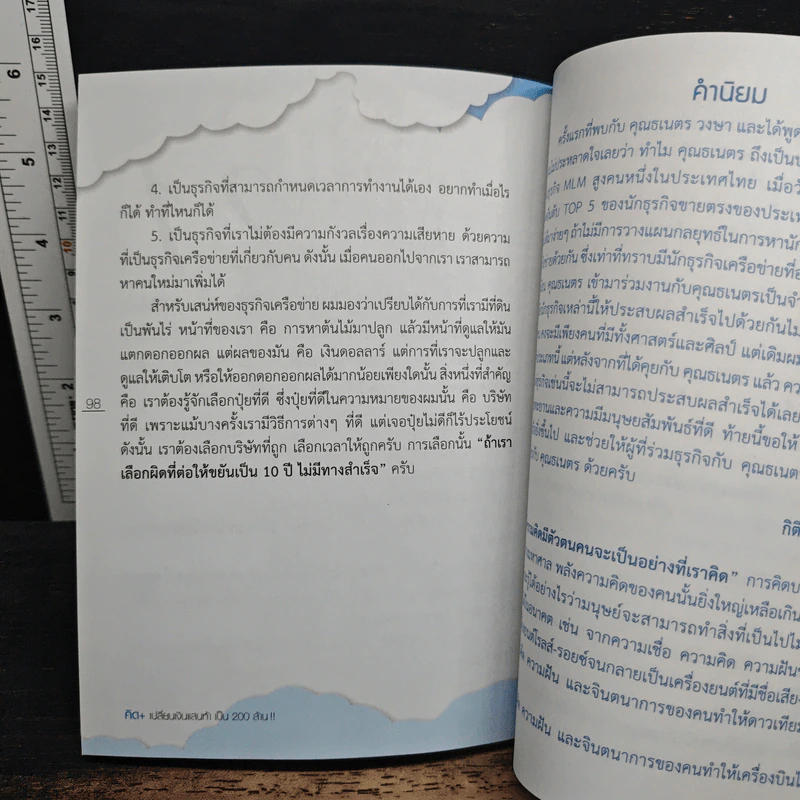 4. เป็นธุรกิจที่สามารถกำหนดเวลาการทำงานได้เอง อยากทำเมื่อไร
ก็ได้ ทำที่ไหนก็ได้
5. เป็นธุรกิจที่เราไม่ต้องมีความกังวลเรื่องความเสียหาย ด้วยความ
ที่เป็นธุรกิจเครือข่ายที่เกี่ยวกับคน ดังนั้น เมื่อคนออกไปจากเรา เราสามารถ
หาคนใหม่มาเพิ่มได้
สำหรับเสน่ห์ของธุรกิจเครือข่าย ผมมองว่าเปรียบได้กับการที่เรามีที่ดิน
เป็นพันไร่ หน้าที่ของเรา คือ การหาต้นไม้มาปลูก แล้วมีหน้าที่ดูแลให้มัน
แตกดอกออกผล แต่ผลของมัน คือ เงินดอลลาร์ แต่การที่เราจะปลูกและ
ดูแลให้เติบโต หรือให้ออกดอกออกผลได้มากน้อยเพียงใดนั้น สิ่งหนึ่งที่สำคัญ
คือ เราต้องรู้จักเลือกปุ๋ยที่ดี ซึ่งปุ๋ยที่ดีในความหมายของผมนั้น คือ บริษัท
ที่ดี เพราะแม้บางครั้งเรามีวิธีการต่างๆ ที่ดี แต่เจอปุ๋ยไม่ดีก็ไร้ประโยชน์
ดังนั้น เราต้องเลือกบริษัทที่ถูก เลือกเวลาให้ถูกครับ การเลือกนั้น “ถ้าเรา
เลือกผิดที่ต่อให้ขยันเป็น 10 ปี ไม่มีทางสำเร็จ” ครับ
98
คิด+ เปลี่ยนเงินแสนห้า เป็น 200 ล้าน !!
คำนิยม
ครั้งแรกที่พบกับ คุณธเนตร วงษา และได้พูด
ประหลาดใจเลยว่า ทำไม คุณธเนตร ถึงเป็น
ธุรกิจ MLM สูงคนหนึ่งในประเทศไทย เมื่อ
อันดับ TOP 5 ของนักธุรกิจขายตรงของประเท
ง่ายๆ ถ้าไม่มีการวางแผนกลยุทธ์ในการหานัก
ด้วยกัน ซึ่งเท่าที่ทราบมีนักธุรกิจเครือข่ายที่
คุณธเนตร เข้ามาร่วมงานกับคุณธเนตรเป็น
นักธุรกิจเหล่านี้ให้ประสบผลสำเร็จไปด้วยกัน
คงจะมีเพียงคนที่มีทั้งศาสตร์และศิลป์ แต่เดิม
แต่หลังจากที่ได้คุยกับ คุณธเนตร แล้ว
ธุรกิจเช่นนี้จะไม่สามารถประสบผลสำเร็จได้เลย
และความมีมนุษยสัมพันธ์ที่ดี ท้ายนี้ขอให้
ขึ้นไป และช่วยให้ผู้ที่ร่วมธุรกิจกับ คุณธเนตร
กับ คุณธเนตร ด้วยครับ
กิติ
ความคิดมีตัวตนคนจะเป็นอย่างที่เราคิด” การคิด
มหาศาล พลังความคิดของคนนั้นยิ่งใหญ่เหลือเกิน
ได้อย่างไรว่ามนุษย์จะสามารถทำสิ่งที่เป็นไป
อนาคต เช่น จากความเชื่อ ความคิด ความฝัน
โรลส์-รอยซ์จนกลายเป็นเครื่องยนต์ที่มีชื่อเสีย
ความฝัน และจินตนาการของคนทำให้ดาวเทียม
ความฝัน และจินตนาการของคนทำให้เครื่องบิน
6
5
4
3
2
1
17
16
15
14
13
12
11
10